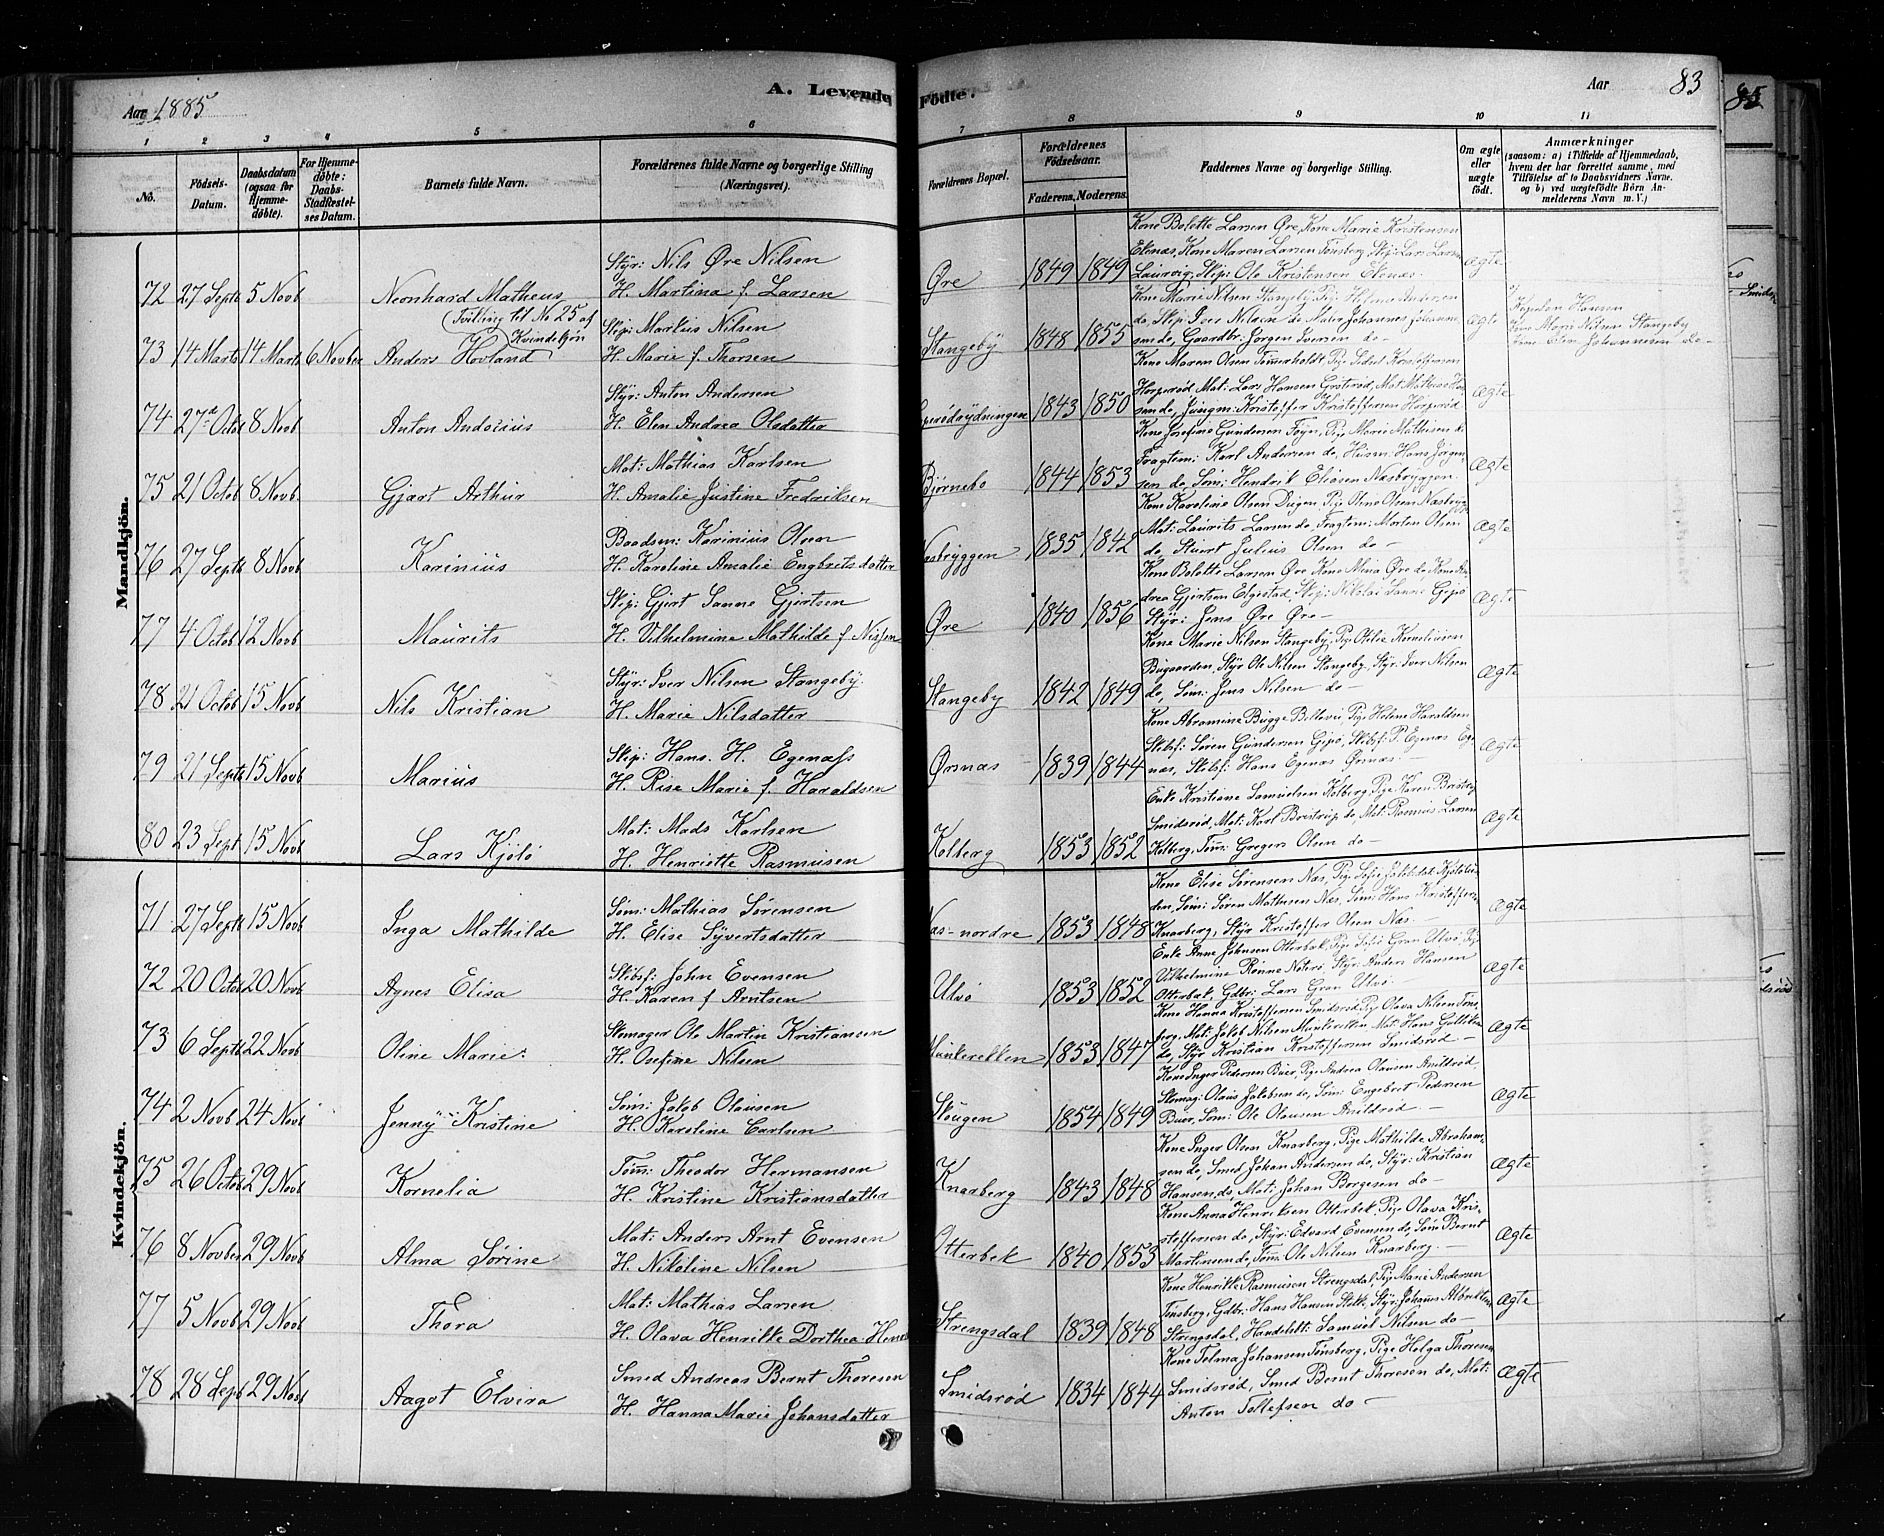 Aar 1885
A. Levende Födte.
Aar 83
85
1 2 3 4 5 6 7 8 9 10 11
No.
Födsels-Datum.
Daabsdatum (ogsaa for Hjemmedøbte).
For Hjemmedøbte: Daabs-Stadfæstelses Datum.
Barnets fulde Navn.
Forældrenes fulde Navne og borgerlige Stilling (Næringsvei).
Forældrenes Bopæl.
Forældrenes Födselsaar.
Faderens. Moderens.
Faddernes Navne og borgerlige Stilling.
Om ægte eller uægte födt.
Anmærkninger
(saasom: a) i Tilfælde af Hjemmedaab, hvem der har forrettet samme, med Tilföielse af to Daabsvidners Navne, og b) ved uægtefödte Börn Anmelderens Navn m. V.)
Mandkjön.
72 27 Septb 5 Novb Neonhard Matheus
Styr: Nils Øre Nilsen
H. Martina f. Larsen
Øre 1849 1849
Kone Bolette Larsen Øre, Kone Marie Kristensen
Ekenæs, Kone Maren Larsen Tønsberg, Skip: Lars Larsen
Laurvig, Skip: Ole Kristensen Ekenæs
Ægte
(Tvilling til No 25 af Kvindekjøn)
73 14 Marts 14 Marts 6 Novber Anders Hovland
Skip: Markus Nilsen
H. Marie f. Thorsen
Stangeby 1848 1855
Kone Marie Nilsen Stangeby, Pige Helma Andersen
do, Skip: Iver Nilsen do, Mat: Johannes Johann-
sen do, Gaardbr: Jørgen Iversen do —
Ægte
Kone Marie Nilsen Stangeby
Kone Elen Johannesen do —
74 27de Octob 8 Novb Anton Andorius
Styr: Anton Andersen
H. Elen Andrea Olsdatter
1843 1850
Kone Maren Olsen Tømmerholdt, Pige Sidsel Kristoffersen
Horperød, Mat: Lars Hansen
do, Jungm: Kristoffer Kristoffersen Horperød
Ægte
75 21 Octob 8 Novb Gjært Arthur
Mat: Mathias Karlsen
H. Amalie Justine Fredriksen
Bjørnebo 1844 1853
Kone Josefine Gundersen Føyn, Pige Marie Mathisen do
Fragtem: Karl Andersen do, Husm: Hans Jörgen-
sen do, Söm: Hendrik Eliasen Næsbryggen
Ægte
76 27 Septb 8 Novb Karinius
Baadsm: Karinius Olsen
H. Karoline Amalie Engbretsdatter
Næsbryggen 1835 1842
Kone Karoline Olsen
Mat: Laurits Larsen do, Fragtem: Morten Olsen
do, Stuert Julius Olsen do —
Ægte
77 4 Octob 12 Novb Maurits
Skip: Gjert Sanne Gjertsen
H. Vilhelmine Mathilde f. Nissen
Øre 1840 1856
Kone Bolette Larsen Øre, Kone Mina Øre do, Kone An-
drea Gjertsen Elgestad, Skip: Nikolai Sanne Gipö
Styr: Jens Øre Øre —
Ægte
78 21 Octob 15 Novb Nils Kristian
Styr: Iver Nilsen Stangeby
H. Marie Nilsdatter
Stangeby 1842 1849
Kone Marie Nilsen Stangeby, Pige Otilie Korneliusen
Bugaarden, Styr Ole Nilsen Stangeby, Styr: Iver Nilsen
do, Söm: Jens Nilsen do —
Ægte
79 21 Septb 15 Novb Marius
Skip: Hans. H. Egenæss
H. Rise Marie f. Haraldsen
Ørsnæs 1839 1844
Kone Abramine Bugge Bellevu, Pige Helene Haraldsen
Skibsf: Sören Gundersen Gipö, Skibsf: P. Egenæs Ege-
næs, Skibsf: Hans Egenæs Ørsnæs —
Ægte
80 23 Sept 15 Novb Lars Kjölö
Mat: Mads Karlsen
H. Henriette Rasmusen
Kolberg 1853 1852
Enke Kristiane Samuelsen Kolberg, Pige Karen Bristrup
Smidsrød, Mat: Karl Bristrup do, Mat: Rasmus Larsen
Kolberg, Töm: Gregers Olsen do —
Ægte
Kvindekjön.
71 27 Septb 15 Novb Inga Mathilde
Söm: Mathias Sörensen
H. Elise Syvertsdatter
Næs-nordre 1853 1848
Kone Elise Sörensen Næs, Pige Sofie
Söm: Sören Mathesen Næs, Söm: Hans Kristoffersen
Knarberg, Styr Kristoffer Olsen Næs —
Ægte
72 20 Octob 20 Novb Agnes Elisa
Skibsf: John Evensen
H. Karen f. Arntsen
Ulvö 1853 1852
Enke Anne Johnsen Otterbæk, Pige Sofie Gran Ulvö, Pige
Vilhelmine Rønne Nøterø, Styr: Anders Hansen
Otterbek, Gdbr: Lars Gran Ulvö
Ægte
73 6 Septb 22 Novb Oline Marie
Skomager Ole Martin Kristiansen
H. Osefine Nilsen
Munkerekken 1853 1847
Kone Hanna Kristoffersen Smidsrød, Pige Olava Nilsen Tøns-
berg, Mat: Jakob Nilsen Munkerekken, Mat: Hans Gulliksen
do, Styr Kristian Kristoffersen Smidsrød —
Ægte
74 2 Novb 24 Novb Jenny Kristine
Söm: Jakob Olausen
H. Karoline Carlsen
Skougen 1854 1849
Kone Inger Pedersen Buer, Pige Andrea Olausen Arildrød,
Skomag: Olaus Jakobsen do, Söm: Engebret Pedersen
Buer, Söm: Ole Olausen Arildrød —
Ægte
75 26 Octob 29 Novb Kornelia
Töm: Theodor Hermansen
H. Kristine Kristiansdatter
Knarberg 1843 1848
Kone Inger Olsen Knarberg, Pige Mathilde Abraham-
sen do, Smed Johan Andersen do, Styr: Kristian
Hansen do, Mat: Johan Borgesen do —
Ægte
76 8 Novber 29 Novb Alma Sørine
Mat: Anders Arnt Evensen
H. Nikoline Nilsen
Otterbek 1840 1853
Kone Anna Henriksen Otterbek, Pige Olava Kris-
toffersen do, Styr: Edvard Evensen do, Söm: Bernt
Martinsen do, Töm: Ole Nilsen Knarberg —
Ægte
77 5 Novb 29 Novb Thora
Mat: Mathias Larsen
H. Olava Henrikke Dorthea
Strengsdal 1839 1848
Kone Henrikke Rasmusen Strengsdal, Pige Marie Andersen
Tønsberg, Gdbr: Hans Hansen Stokk, Styr: Johannes Albriktsen
Strengsdal, Handelsbt: Samuel Nilsen do —
Ægte
78 28 Septb 29 Novb Aagot Elvira
Smed Andreas Bernt Thoresen
H. Hanna Marie Johansdatter
Smidsrød 1834 1844
Kone Telma Johansen Tønsberg, Pige Helga Thoresen
Smidsrød, Smed Bernt Thoresen do, Mat:
Anton Tollefsen do —
Ægte